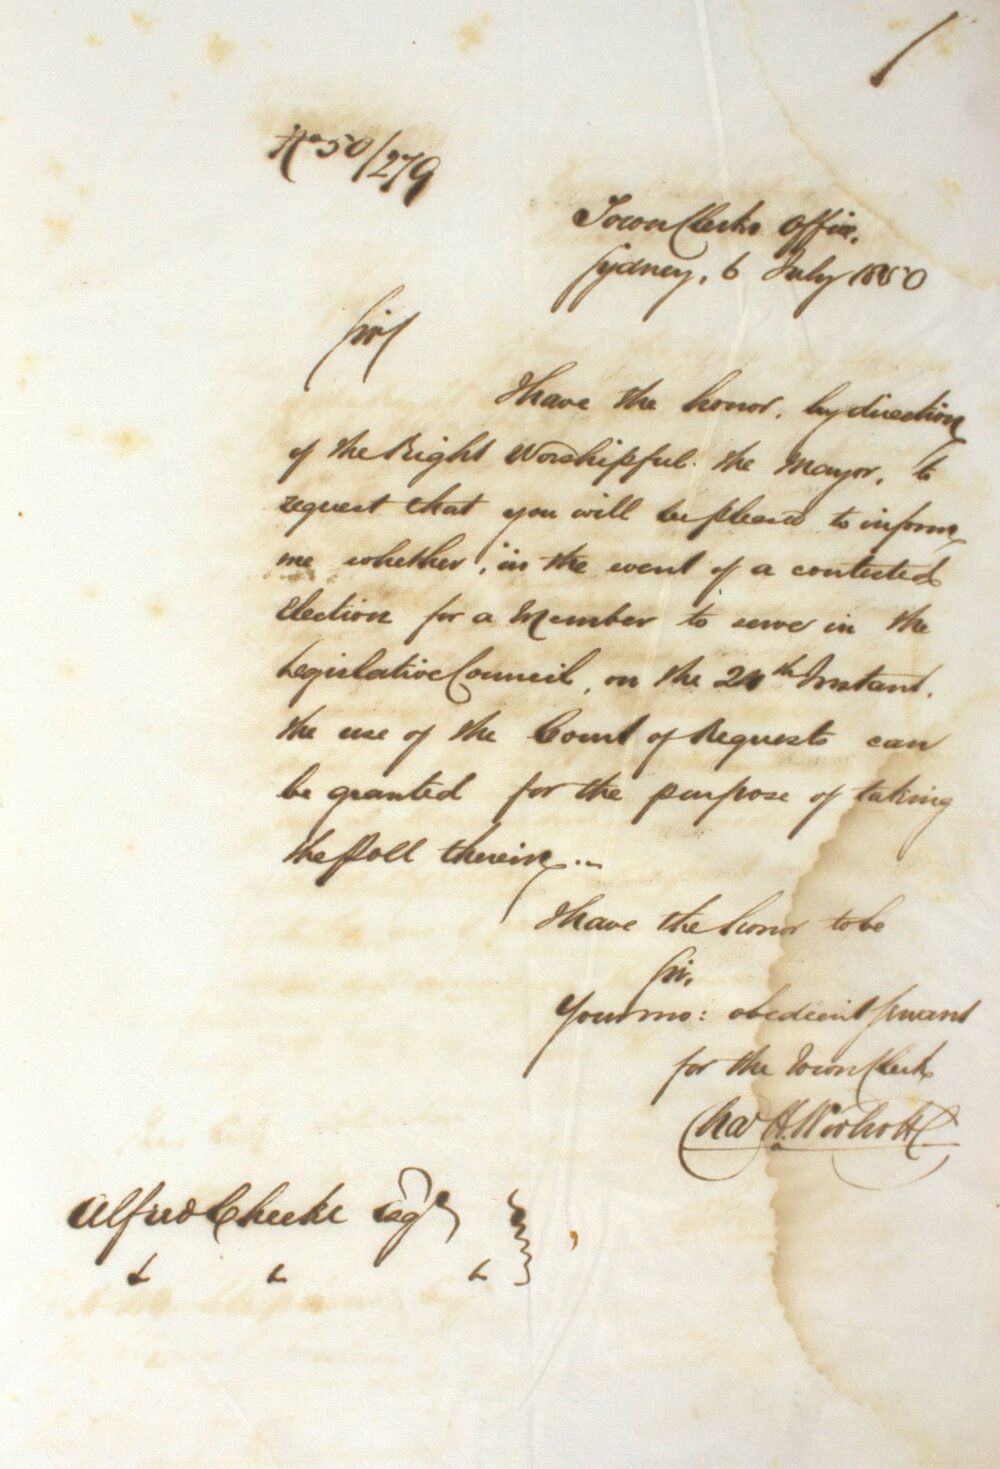 No 50/279
Town Clerks Office,
Sydney, 6 July 1850
Sir,
I have the honor, by direction
of the Right Worshipful the Mayor, to
request that you will be pleased to inform
me whether, in the event of a contested
Election for a Member to serve in the
Legislative Council, on the 24th Instant,
the use of the Court of Requests can
be granted for the purpose of taking
the Poll therein.
I have the honor to be
Sir,
Your mo: obedient Servant
for the Town Clerk
Chas H. Woolcott
Alfred Cheeke Esqre